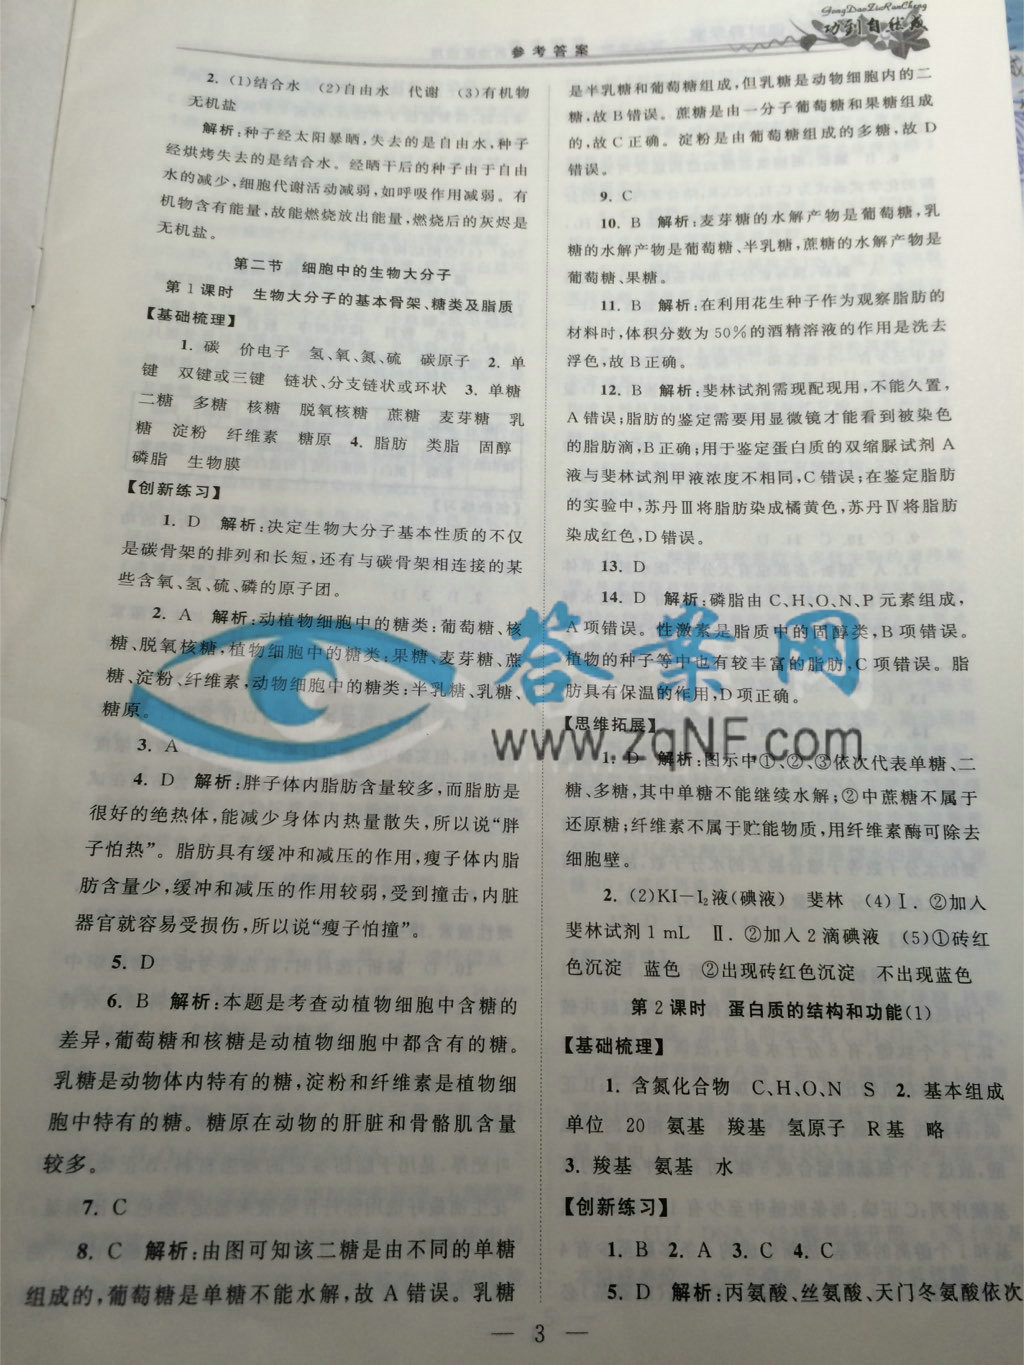 GongDaoZiRanCheng
功到自然成
参考答案
2. (1)结合水 (2)自由水 代谢 (3)有机物
无机盐
解析:种子经太阳暴晒,失去的是自由水,种子
经烘烤失去的是结合水。经晒干后的种子由于自由
水的减少,细胞代谢活动减弱,如呼吸作用减弱。有
机物含有能量,故能燃烧放出能量,燃烧后的灰烬是
无机盐。
第二节 细胞中的生物大分子
第1课时 生物大分子的基本骨架、糖类及脂质
【基础梳理】
1. 碳 价电子 氢、氧、氮、硫 碳原子 2. 单
键 双键或三键 链状、分支链状或环状 3. 单糖
二糖 多糖 核糖 脱氧核糖 蔗糖 麦芽糖 乳
糖 淀粉 纤维素 糖原 4. 脂肪 类脂 固醇
磷脂 生物膜
【创新练习】
1. D 解析:决定生物大分子基本性质的不仅
是碳骨架的排列和长短,还有与碳骨架相连接的某
些含氧、氢、硫、磷的原子团。
2. A 解析:动植物细胞中的糖类:葡萄糖、核
糖、脱氧核糖,植物细胞中的糖类:果糖、麦芽糖、蔗
糖、淀粉、纤维素,动物细胞中的糖类:半乳糖、乳糖、
糖原。
3. A
4. D 解析:胖子体内脂肪含量较多,而脂肪是
很好的绝热体,能减少身体内热量散失,所以说“胖
子怕热”。脂肪具有缓冲和减压的作用,瘦子体内脂
肪含量少,缓冲和减压的作用较弱,受到撞击,内脏
器官就容易受损伤,所以说“瘦子怕撞”。
5. D
6. B 解析:本题是考查动植物细胞中含糖的
差异,葡萄糖和核糖是动植物细胞中都含有的糖。
乳糖是动物体内特有的糖,淀粉和纤维素是植物细
胞中特有的糖。糖原在动物的肝脏和骨骼肌含量
较多。
7. C
8. C 解析:由图可知该二糖是由不同的单糖
组成的,葡萄糖是单糖不能水解,故 A 错误。乳糖
是半乳糖和葡萄糖组成,但乳糖是动物细胞内的二
糖,故 B 错误。蔗糖是由一分子葡萄糖和果糖组成
的,故 C 正确。淀粉是由葡萄糖组成的多糖,故 D
错误。
9. C
10. B 解析:麦芽糖的水解产物是葡萄糖,乳
糖的水解产物是葡萄糖、半乳糖,蔗糖的水解产物是
葡萄糖、果糖。
11. B 解析:在利用花生种子作为观察脂肪的
材料时,体积分数为 50%的酒精溶液的作用是洗去
浮色,故 B 正确。
12. B 解析:斐林试剂需现配现用,不能久置,
A 错误;脂肪的鉴定需要用显微镜才能看到被染色
的脂肪滴,B 正确;用于鉴定蛋白质的双缩脲试剂 A
液与斐林试剂甲液浓度不相同,C 错误;在鉴定脂肪
的实验中,苏丹Ⅲ将脂肪染成橘黄色,苏丹Ⅳ将脂肪
染成红色,D 错误。
13. D
14. D 解析:磷脂由 C、H、O、N、P 元素组成,
A 项错误。性激素是脂质中的固醇类,B 项错误。
植物的种子等中也有较丰富的脂肪,C 项错误。脂
肪具有保温的作用,D 项正确。
【思维拓展】
1. D 解析:图示中①、②、③依次代表单糖、二
糖、多糖,其中单糖不能继续水解;②中蔗糖不属于
还原糖;纤维素不属于贮能物质,用纤维素酶可除去
细胞壁。
2. (2)KI—I₂液(碘液) 斐林 (4)Ⅰ. ②加入
斐林试剂 1 mL Ⅱ. ②加入 2 滴碘液 (5)①砖红
色沉淀 蓝色 ②出现砖红色沉淀 不出现蓝色
第2课时 蛋白质的结构和功能(1)
【基础梳理】
1. 含氮化合物 C、H、O、N S 2. 基本组成
单位 20 氨基 羧基 氢原子 R 基 略
3. 羧基 氨基 水
【创新练习】
1. B 2. A 3. C 4. C
5. D 解析:丙氨酸、丝氨酸、天门冬氨酸依次
— 3 —
答案网
www.zqNF.com